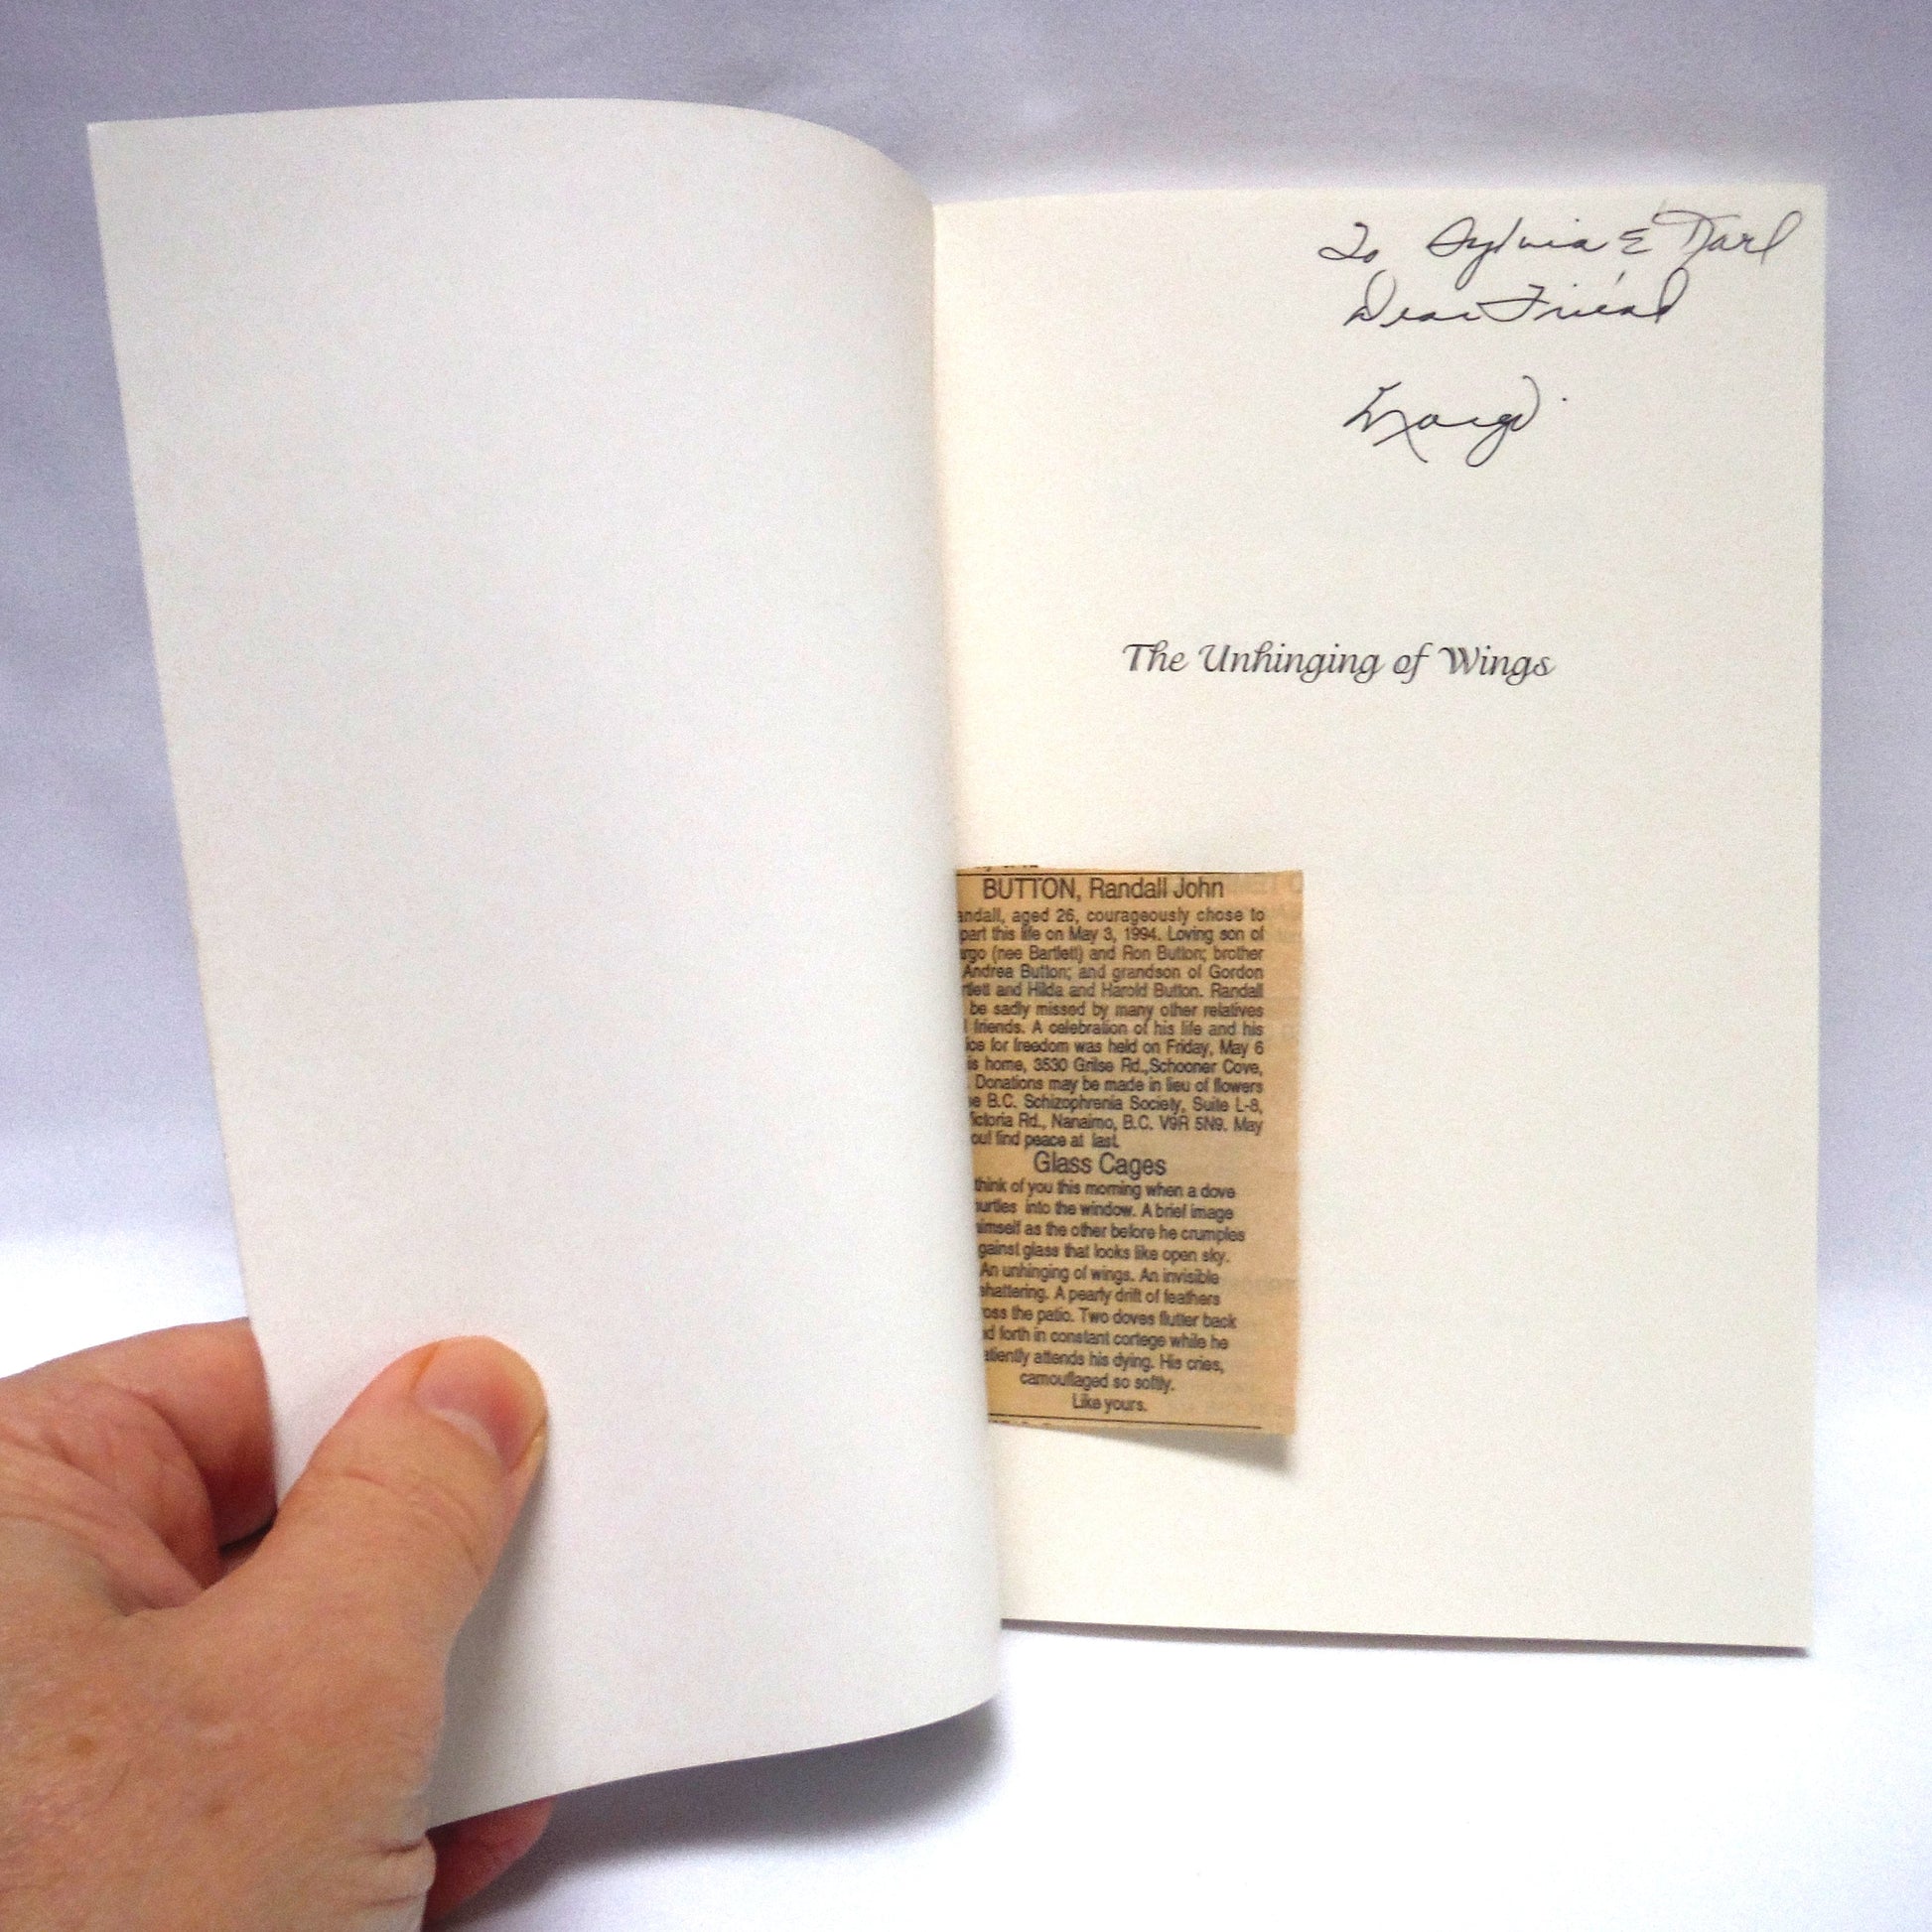 To Sylvia & Karl
Dear Friend
Margo
The Unhinging of Wings
BUTTON, Randall John
andall, aged 26, courageously chose to
part this life on May 3, 1994. Loving son of
argo (nee Bartlett) and Ron Button; brother
Andrea Button; and grandson of Gordon
rtlett and Hilda and Harold Button. Randall
be sadly missed by many other relatives
friends. A celebration of his life and his
ice for freedom was held on Friday, May 6
is home, 3530 Grilse Rd.,Schooner Cove,
. Donations may be made in lieu of flowers
e B.C. Schizophrenia Society, Suite L-8,
ictoria Rd., Nanaimo, B.C. V9R 5N9. May
oul find peace at last.
Glass Cages
think of you this morning when a dove
urtles into the window. A brief image
imself as the other before he crumples
gainst glass that looks like open sky.
An unhinging of wings. An invisible
shattering. A pearly drift of feathers
ross the patio. Two doves flutter back
nd forth in constant cortege while he
atiently attends his dying. His cries,
camouflaged so softly.
Like yours.